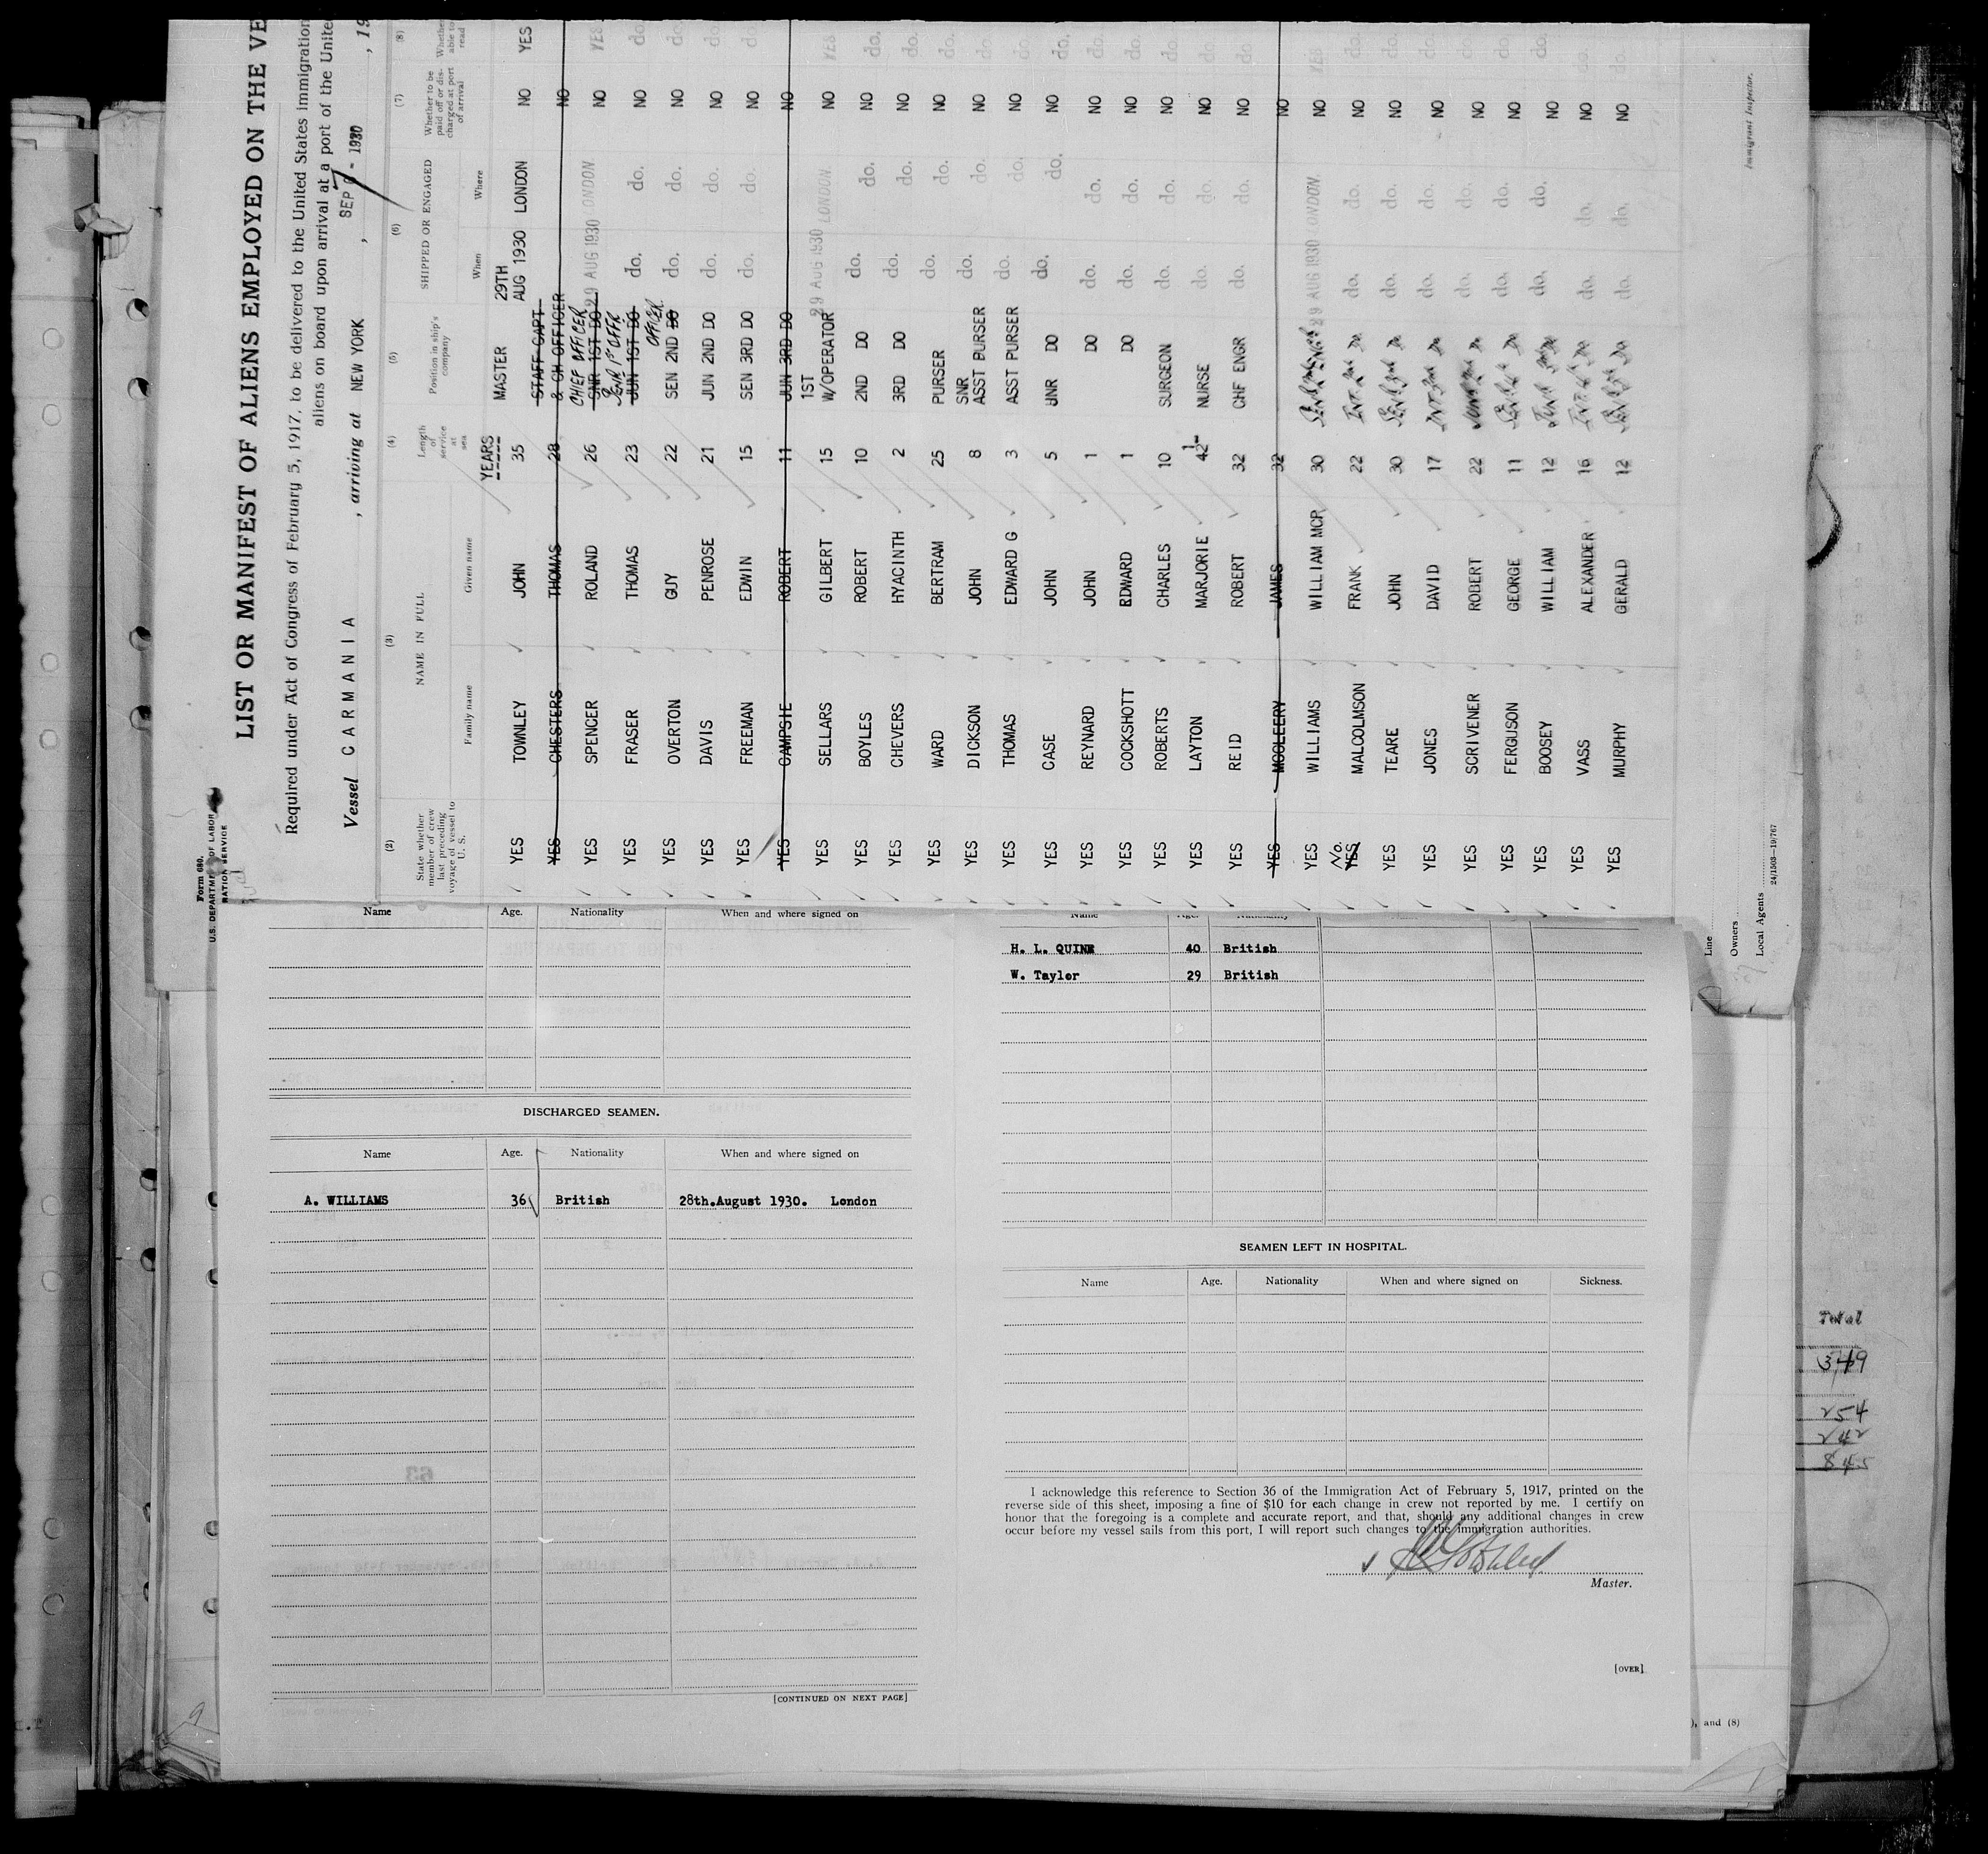 Form 680.
U.S. DEPARTMENT OF LABOR
LIST OR MANIFEST OF ALIENS EMPLOYED ON THE VE
Required under Act of Congress of February 5, 1917, to be delivered to the United States Immigration
aliens on board upon arrival at a port of the Unite
Vessel CARMANIA , arriving at NEW YORK , SEP 7 - 1930 , 19
(2) (3) (4) (5) (6) (7) (8)
State whether member of crew last preceding voyage of vessel to U. S.
NAME IN FULL
Family name Given name
Length of service at sea
Position in ship's company
SHIPPED OR ENGAGED
When Where
Whether to be paid off or discharged at port of arrival
Whether able to read
YEARS
YES TOWNLEY JOHN 35 MASTER 29TH AUG 1930 LONDON NO YES
YES CHESTERS THOMAS 28 STAFF CAPT & CH OFFICER NO
YES SPENCER ROLAND 26 SNR 1ST DO CHIEF OFFICER 29 AUG 1930 LONDON NO YES
YES FRASER THOMAS 23 JUN 1ST DO do. do. NO do.
YES OVERTON GUY 22 SEN 2ND DO OFFICER do. do. NO do.
YES DAVIS PENROSE 21 JUN 2ND DO do. do. NO do.
YES FREEMAN EDWIN 15 SEN 3RD DO do. do. NO do.
YES CAMPSIE ROBERT 11 JUN 3RD DO NO
YES SELLARS GILBERT 15 1ST W/OPERATOR 29 AUG 1930 LONDON NO YES
YES BOYLES ROBERT 10 2ND DO do. do. NO do.
YES CHEVERS HYACINTH 2 3RD DO do. do. NO do.
YES WARD BERTRAM 25 PURSER do. do. NO do.
YES DICKSON JOHN 8 SNR ASST PURSER do. do. NO do.
YES THOMAS EDWARD G 3 ASST PURSER do. do. NO do.
YES CASE JOHN 5 UNR DO do. do. NO do.
YES REYNARD JOHN 1 DO do. do. NO do.
YES COCKSHOTT EDWARD 1 DO do. do. NO do.
YES ROBERTS CHARLES 10 SURGEON do. do. NO do.
YES LAYTON MARJORIE 4½ NURSE do. do. NO do.
YES REID ROBERT 32 CHF ENGR do. do. NO do.
YES MCCLEERY JAMES 32 NO
YES WILLIAMS WILLIAM MCR 30 29 AUG 1930 LONDON NO YES
No. YES MALCOLMSON FRANK 22 do. do. NO do.
YES TEARE JOHN 30 do. do. NO do.
YES JONES DAVID 17 do. do. NO do.
YES SCRIVENER ROBERT 22 do. do. NO do.
YES FERGUSON GEORGE 11 do. do. NO do.
YES BOOSEY WILLIAM 12 do. do. NO do.
YES VASS ALEXANDER 16 do. do. NO do.
YES MURPHY GERALD 12 do. do. NO do.
Immigrant Inspector.
Line
Owners
Local Agents
24/1503—19/767
Name Age. Nationality When and where signed on
DISCHARGED SEAMEN.
Name Age. Nationality When and where signed on
A. WILLIAMS 36 British 28th.August 1930. London
[CONTINUED ON NEXT PAGE]
Name Age. Nationality
H. L. QUINE 40 British
W. Taylor 29 British
SEAMEN LEFT IN HOSPITAL.
Name Age. Nationality When and where signed on Sickness.
I acknowledge this reference to Section 36 of the Immigration Act of February 5, 1917, printed on the
reverse side of this sheet, imposing a fine of $10 for each change in crew not reported by me. I certify on
honor that the foregoing is a complete and accurate report, and that, should any additional changes in crew
occur before my vessel sails from this port, I will report such changes to the immigration authorities.
Master.
[OVER]
), and (8)
Total
349
254
242
845